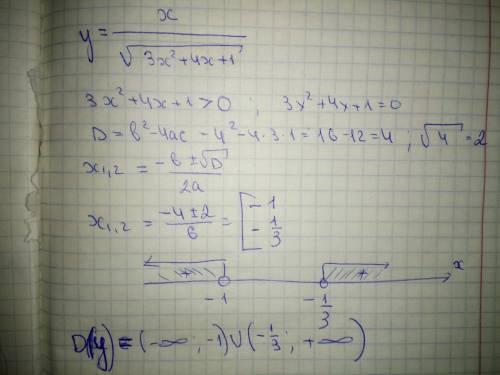 y = x / √(3x²+4x+1)
3x²+4x+1>0 ; 3x²+4x+1=0
D = b²-4ac - 4²-4·3·1=16-12=4 ; √4 = 2
x₁,₂ = -b ± √D / 2a
x₁,₂ = -4 ± 2 / 6 = [ -1 -1/3
+ + x
-1 -1/3
D(y) = (-∞ ; -1) ∪ (-1/3 ; +∞)